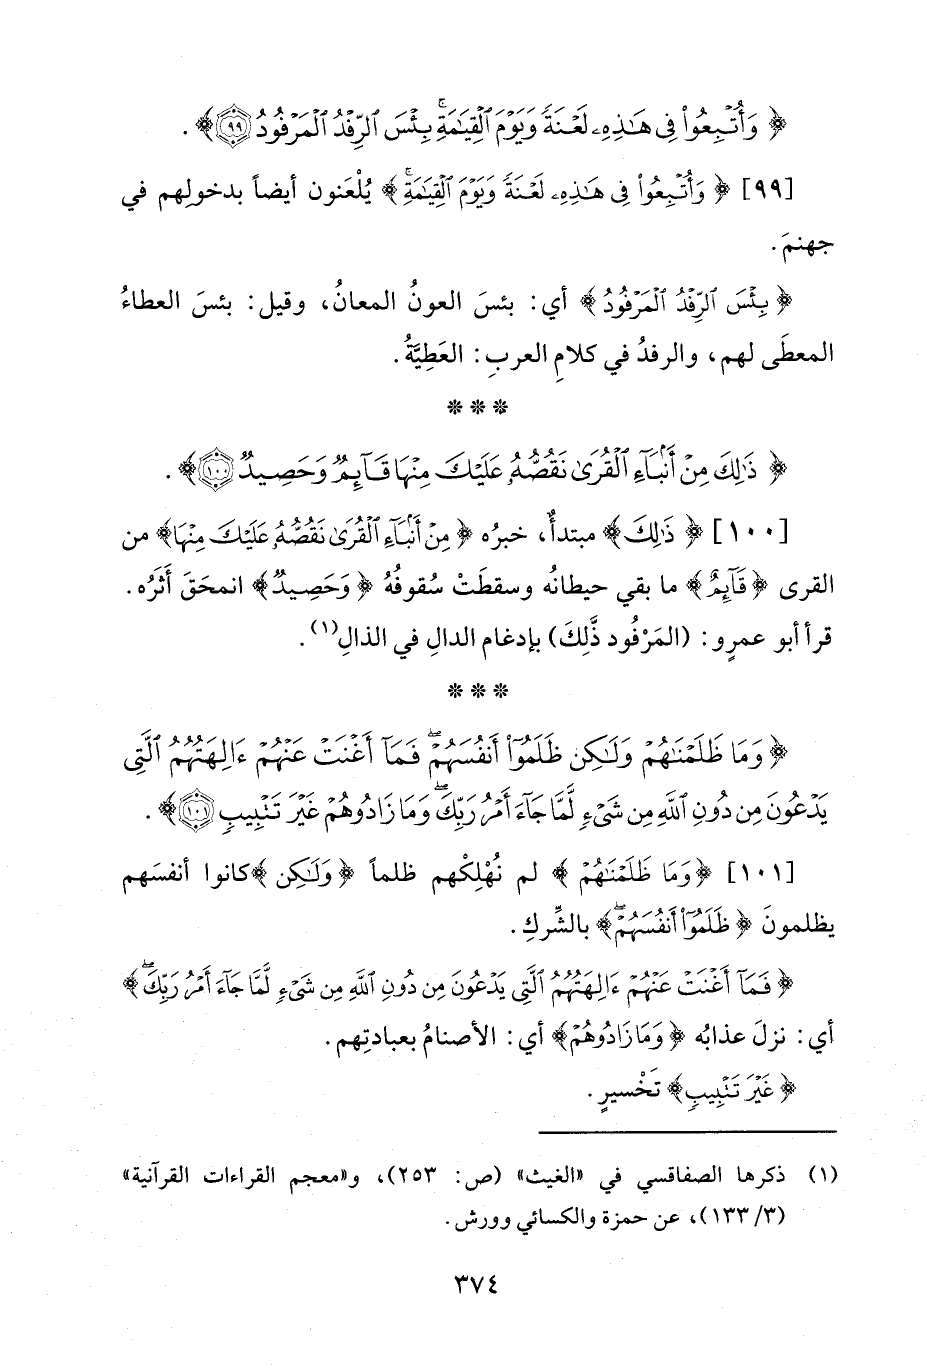 ﴿ وَأُتۡبِعُواْ فِي هَٰذِهِۦ لَعۡنَةٗ وَيَوۡمَ ٱلۡقِيَٰمَةِۚ بِئۡسَ ٱلرِّفۡدُ ٱلۡمَرۡفُودُ ٩٩ ﴾ .
[٩٩] ﴿ وَأُتۡبِعُواْ فِي هَٰذِهِۦ لَعۡنَةٗ وَيَوۡمَ ٱلۡقِيَٰمَةِۚ ﴾ يُلْعَنون أيضاً بدخولِهم في
جهنمَ.
﴿ بِئۡسَ ٱلرِّفۡدُ ٱلۡمَرۡفُودُ ﴾ أي: بئسَ العونُ المعانُ، وقيل: بئسَ العطاءُ
المعطَى لهم، والرفدُ في كلامِ العربِ: العَطِيَّةُ.
* * *
﴿ ذَٰلِكَ مِنۡ أَنۢبَآءِ ٱلۡقُرَىٰ نَقُصُّهُۥ عَلَيۡكَ مِنۡهَا قَآئِمٞ وَحَصِيدٞ ١٠٠ ﴾ .
[١٠٠] ﴿ ذَٰلِكَ ﴾ مبتدأٌ، خبرُه ﴿ مِنۡ أَنۢبَآءِ ٱلۡقُرَىٰ نَقُصُّهُۥ عَلَيۡكَ مِنۡهَا ﴾ من
القرى ﴿ قَآئِمٞ ﴾ ما بقي حيطانُه وسقطَتْ سُقوفُهُ ﴿ وَحَصِيدٞ ﴾ انمحَقَ أَثَرُه.
قرأ أبو عمرٍو: (المَرْفُود ذَّلِكَ) بإدغام الدالِ في الذالِ(١).
* * *
﴿ وَمَا ظَلَمۡنَٰهُمۡ وَلَٰكِن ظَلَمُوٓاْ أَنفُسَهُمۡۖ فَمَآ أَغۡنَتۡ عَنۡهُمۡ ءَالِهَتُهُمُ ٱلَّتِي
يَدۡعُونَ مِن دُونِ ٱللَّهِ مِن شَيۡءٖ لَّمَّا جَآءَ أَمۡرُ رَبِّكَۖ وَمَا زَادُوهُمۡ غَيۡرَ تَتۡبِيبٖ ١٠١ ﴾ .
[١٠١] ﴿ وَمَا ظَلَمۡنَٰهُمۡ ﴾ لم نُهْلِكْهم ظلماً ﴿ وَلَٰكِن ﴾ كانوا أنفسَهم
يظلمونَ ﴿ ظَلَمُوٓاْ أَنفُسَهُمۡۖ ﴾ بالشِّركِ.
﴿ فَمَآ أَغۡنَتۡ عَنۡهُمۡ ءَالِهَتُهُمُ ٱلَّتِي يَدۡعُونَ مِن دُونِ ٱللَّهِ مِن شَيۡءٖ لَّمَّا جَآءَ أَمۡرُ رَبِّكَۖ ﴾
أي: نزلَ عذابُه ﴿ وَمَا زَادُوهُمۡ ﴾ أي: الأصنامُ بعبادتِهم.
﴿ غَيۡرَ تَتۡبِيبٖ ﴾ تَخْسيرٍ.
(١) ذكرها الصفاقسي في «الغيث» (ص: ٢٥٣)، و«معجم القراءات القرآنية»
(٣/ ١٣٣)، عن حمزة والكسائي وورش.
٣٧٤